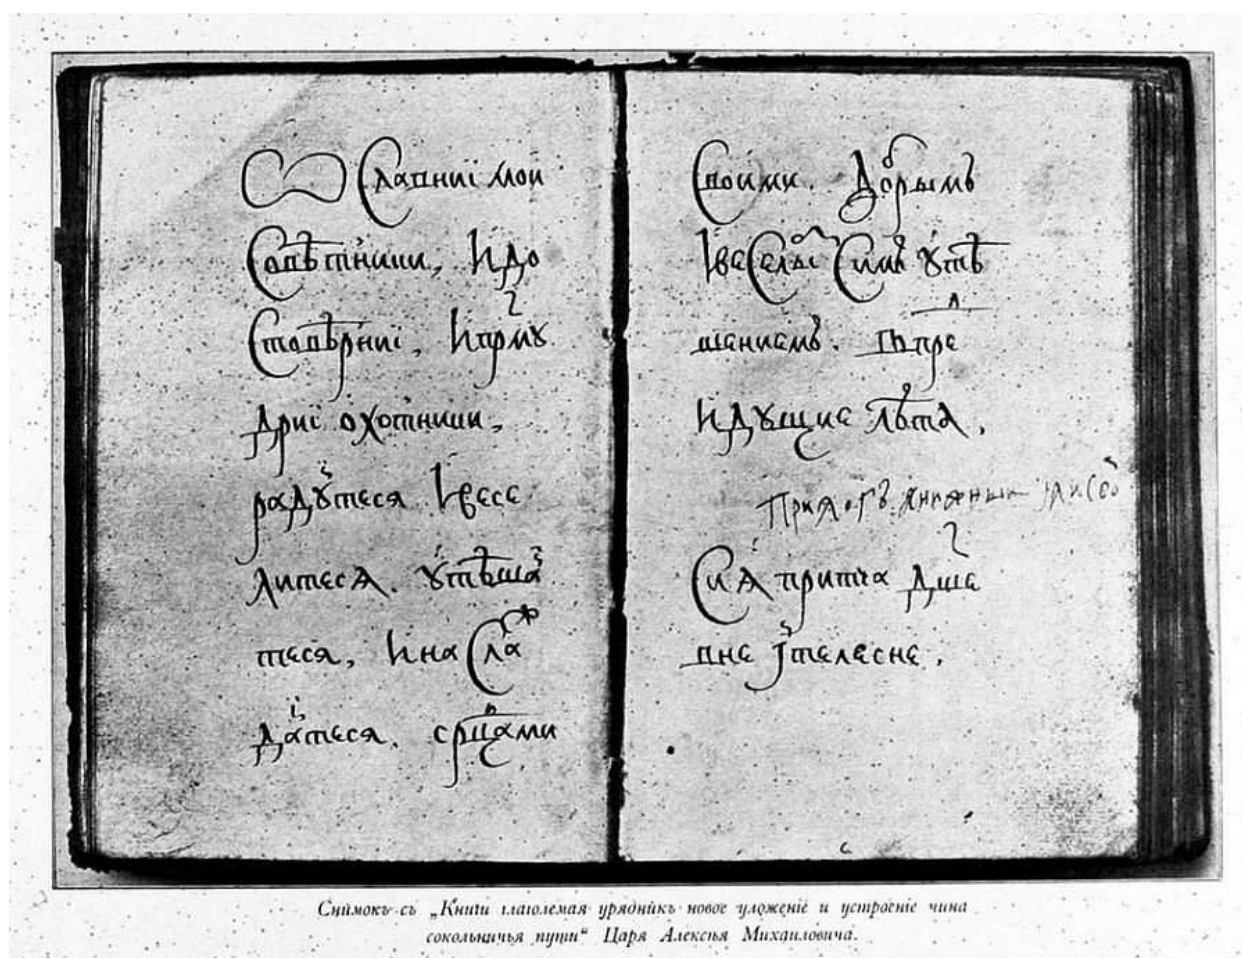 О Славниі мои
Совѣтницы, И до
Стовѣрниі, И прмꙋ
дриі охотницы,
радꙋ̆теся И весе
литеся ꙋтѣшӑ
теся, И на Сла
дӑтеся. срцами
Своими. Добрымъ
И веСелы Симъ ꙋтѣ
шениемъ. въ пре
Идꙋщие лѣта,
Сия притча дше
вне и телесне,
Снимокъ съ „Книги глаголемая урядникъ новое уложеніе и устроеніе чина
сокольничья пути“ Царя Алексѣя Михаиловича.